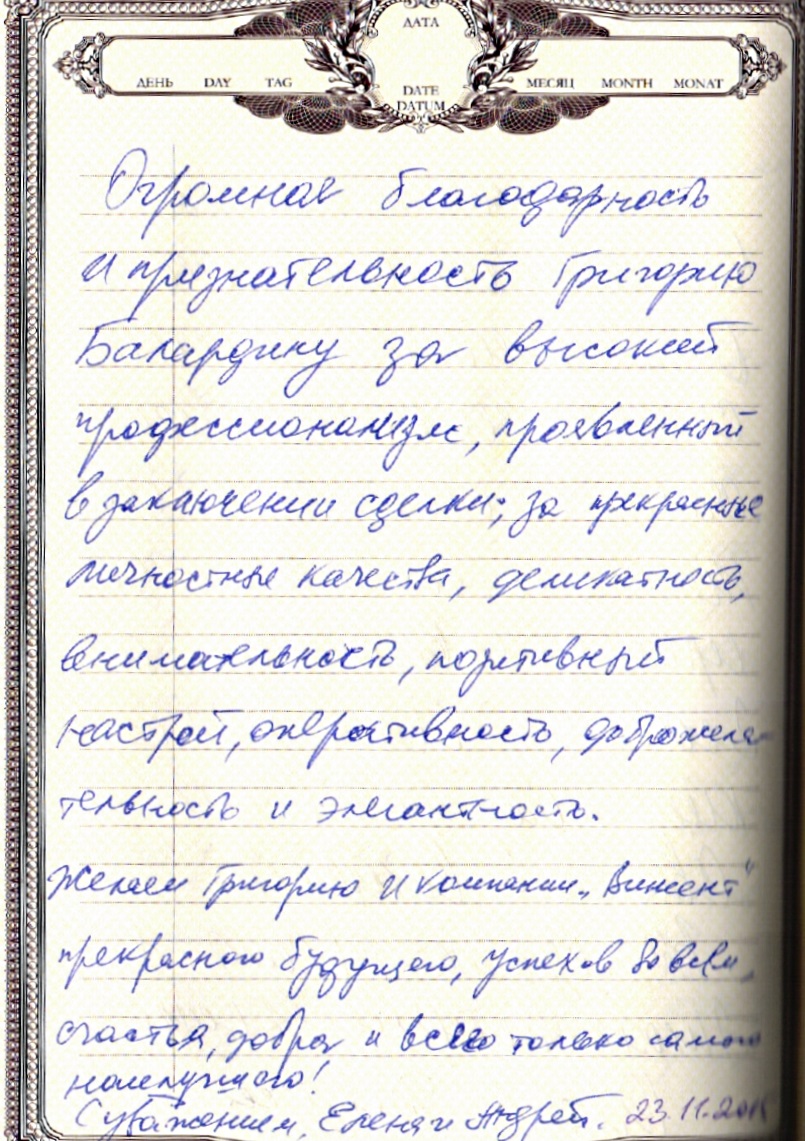 ДАТА
ДЕНЬ DAY TAG
МЕСЯЦ MONTH MONAT
DATE
DATUM
Огромная благодарность
и признательность Григорию
за высокий
профессионализм, проявленный
в заключении сделки; за прекрасные
личностные качества, деликатность,
внимательность, позитивный
настрой, оперативность, доброжела-
тельность и элегантность.
Желаем Григорию и компании „Винсент"
прекрасного будущего, успехов во всём,
счастья, добра и всего только самого
наилучшего!
С уважением, Елена и Андрей. 23.11.2015